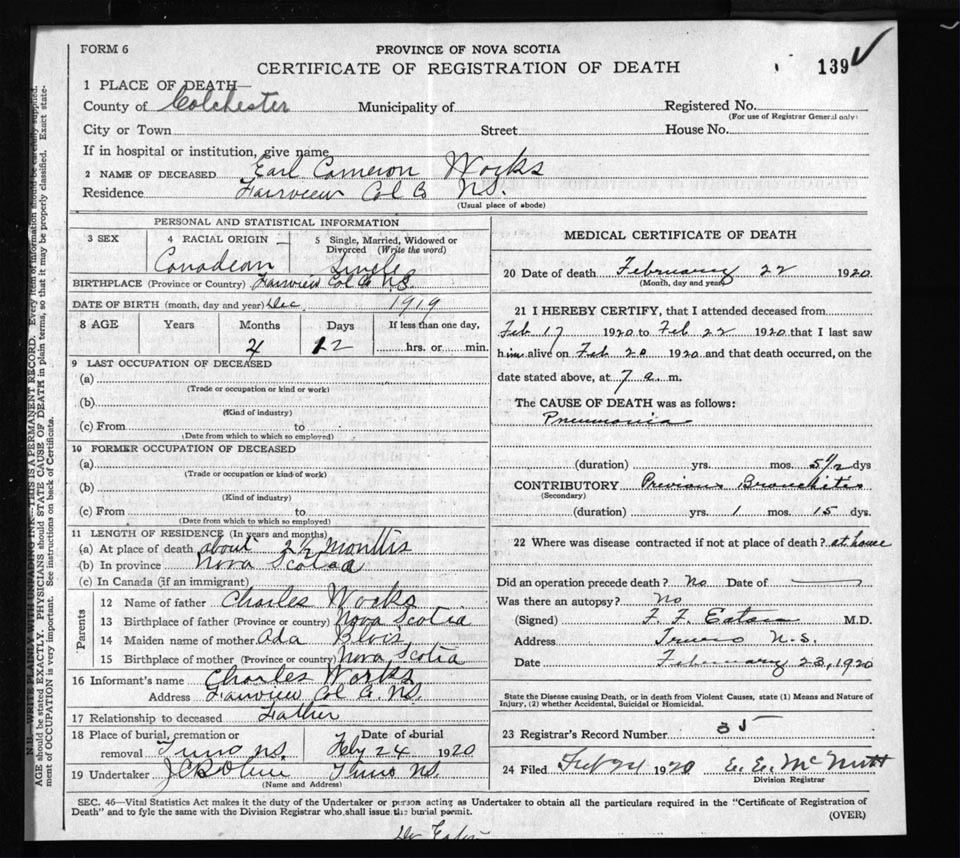 FORM 6
PROVINCE OF NOVA SCOTIA
CERTIFICATE OF REGISTRATION OF DEATH
139
1 PLACE OF DEATH—
County of Colchester Municipality of Registered No.
(For use of Registrar General only)
City or Town Street House No.
If in hospital or institution, give name
2 NAME OF DECEASED Earl Cameron Works
Residence Fairview Col Co N.S.
(Usual place of abode)
PERSONAL AND STATISTICAL INFORMATION
3 SEX 4 RACIAL ORIGIN 5 Single, Married, Widowed or Divorced (Write the word)
Canadean Single
BIRTHPLACE (Province or Country) Fairview Col Co N.S.
DATE OF BIRTH (month, day and year) Dec 1919
8 AGE Years Months Days If less than one day,
12 hrs. or min.
9 LAST OCCUPATION OF DECEASED
(a)
(Trade or occupation or kind or work)
(b)
(Kind of industry)
(c) From to
(Date from which to which so employed)
10 FORMER OCCUPATION OF DECEASED
(a)
(Trade or occupation or kind of work)
(b)
(Kind of industry)
(c) From to
(Date from which to which so employed)
11 LENGTH OF RESIDENCE (In years and months)
(a) At place of death about 2½ months
(b) In province Nova Scotia
(c) In Canada (if an immigrant)
Parents
12 Name of father Charles Works
13 Birthplace of father (Province or country) Nova Scotia
14 Maiden name of mother Ada Blois
15 Birthplace of mother (Province or country) Nova Scotia
16 Informant's name Charles Works
Address Fairview Col Co. N.S.
17 Relationship to deceased Father
18 Place of burial, cremation or Date of burial
removal Truro N.S. Feby 24 1920
19 Undertaker Truro N.S.
(Name and Address)
MEDICAL CERTIFICATE OF DEATH
20 Date of death February 22 1920
(Month, day and year)
21 I HEREBY CERTIFY, that I attended deceased from
Feb 17 1920 to Feb 22 1920 that I last saw
him alive on Feb 20 1920 and that death occurred, on the
date stated above, at 7 a. m.
The CAUSE OF DEATH was as follows:
Pneumonia
(duration) yrs. mos. 5½ dys
CONTRIBUTORY Previous Bronchitis
(Secondary)
(duration) yrs. 1 mos. 15 dys.
22 Where was disease contracted if not at place of death? at home
Did an operation precede death? No Date of
Was there an autopsy? No
(Signed) F. F. Eaton M.D.
Address Truro N.S.
Date February 23, 1920
State the Disease causing Death, or in death from Violent Causes, state (1) Means and Nature of
Injury, (2) whether Accidental, Suicidal or Homicidal.
23 Registrar's Record Number 35
24 Filed Feb 24 1920 E. E. McNutt
Division Registrar
SEC. 46—Vital Statistics Act makes it the duty of the Undertaker or person acting as Undertaker to obtain all the particulars required in the "Certificate of Registration of
Death" and to fyle the same with the Division Registrar who shall issue the burial permit.
(OVER)
N.B. WRITE PLAINLY WITH UNFADING INK—THIS IS A PERMANENT RECORD. Every item of information should be carefully supplied.
AGE should be stated EXACTLY. PHYSICIANS should STATE CAUSE OF DEATH in plain terms, so that it may be properly classified. Exact state-
ment of OCCUPATION is very important. See instructions on back of Certificate.